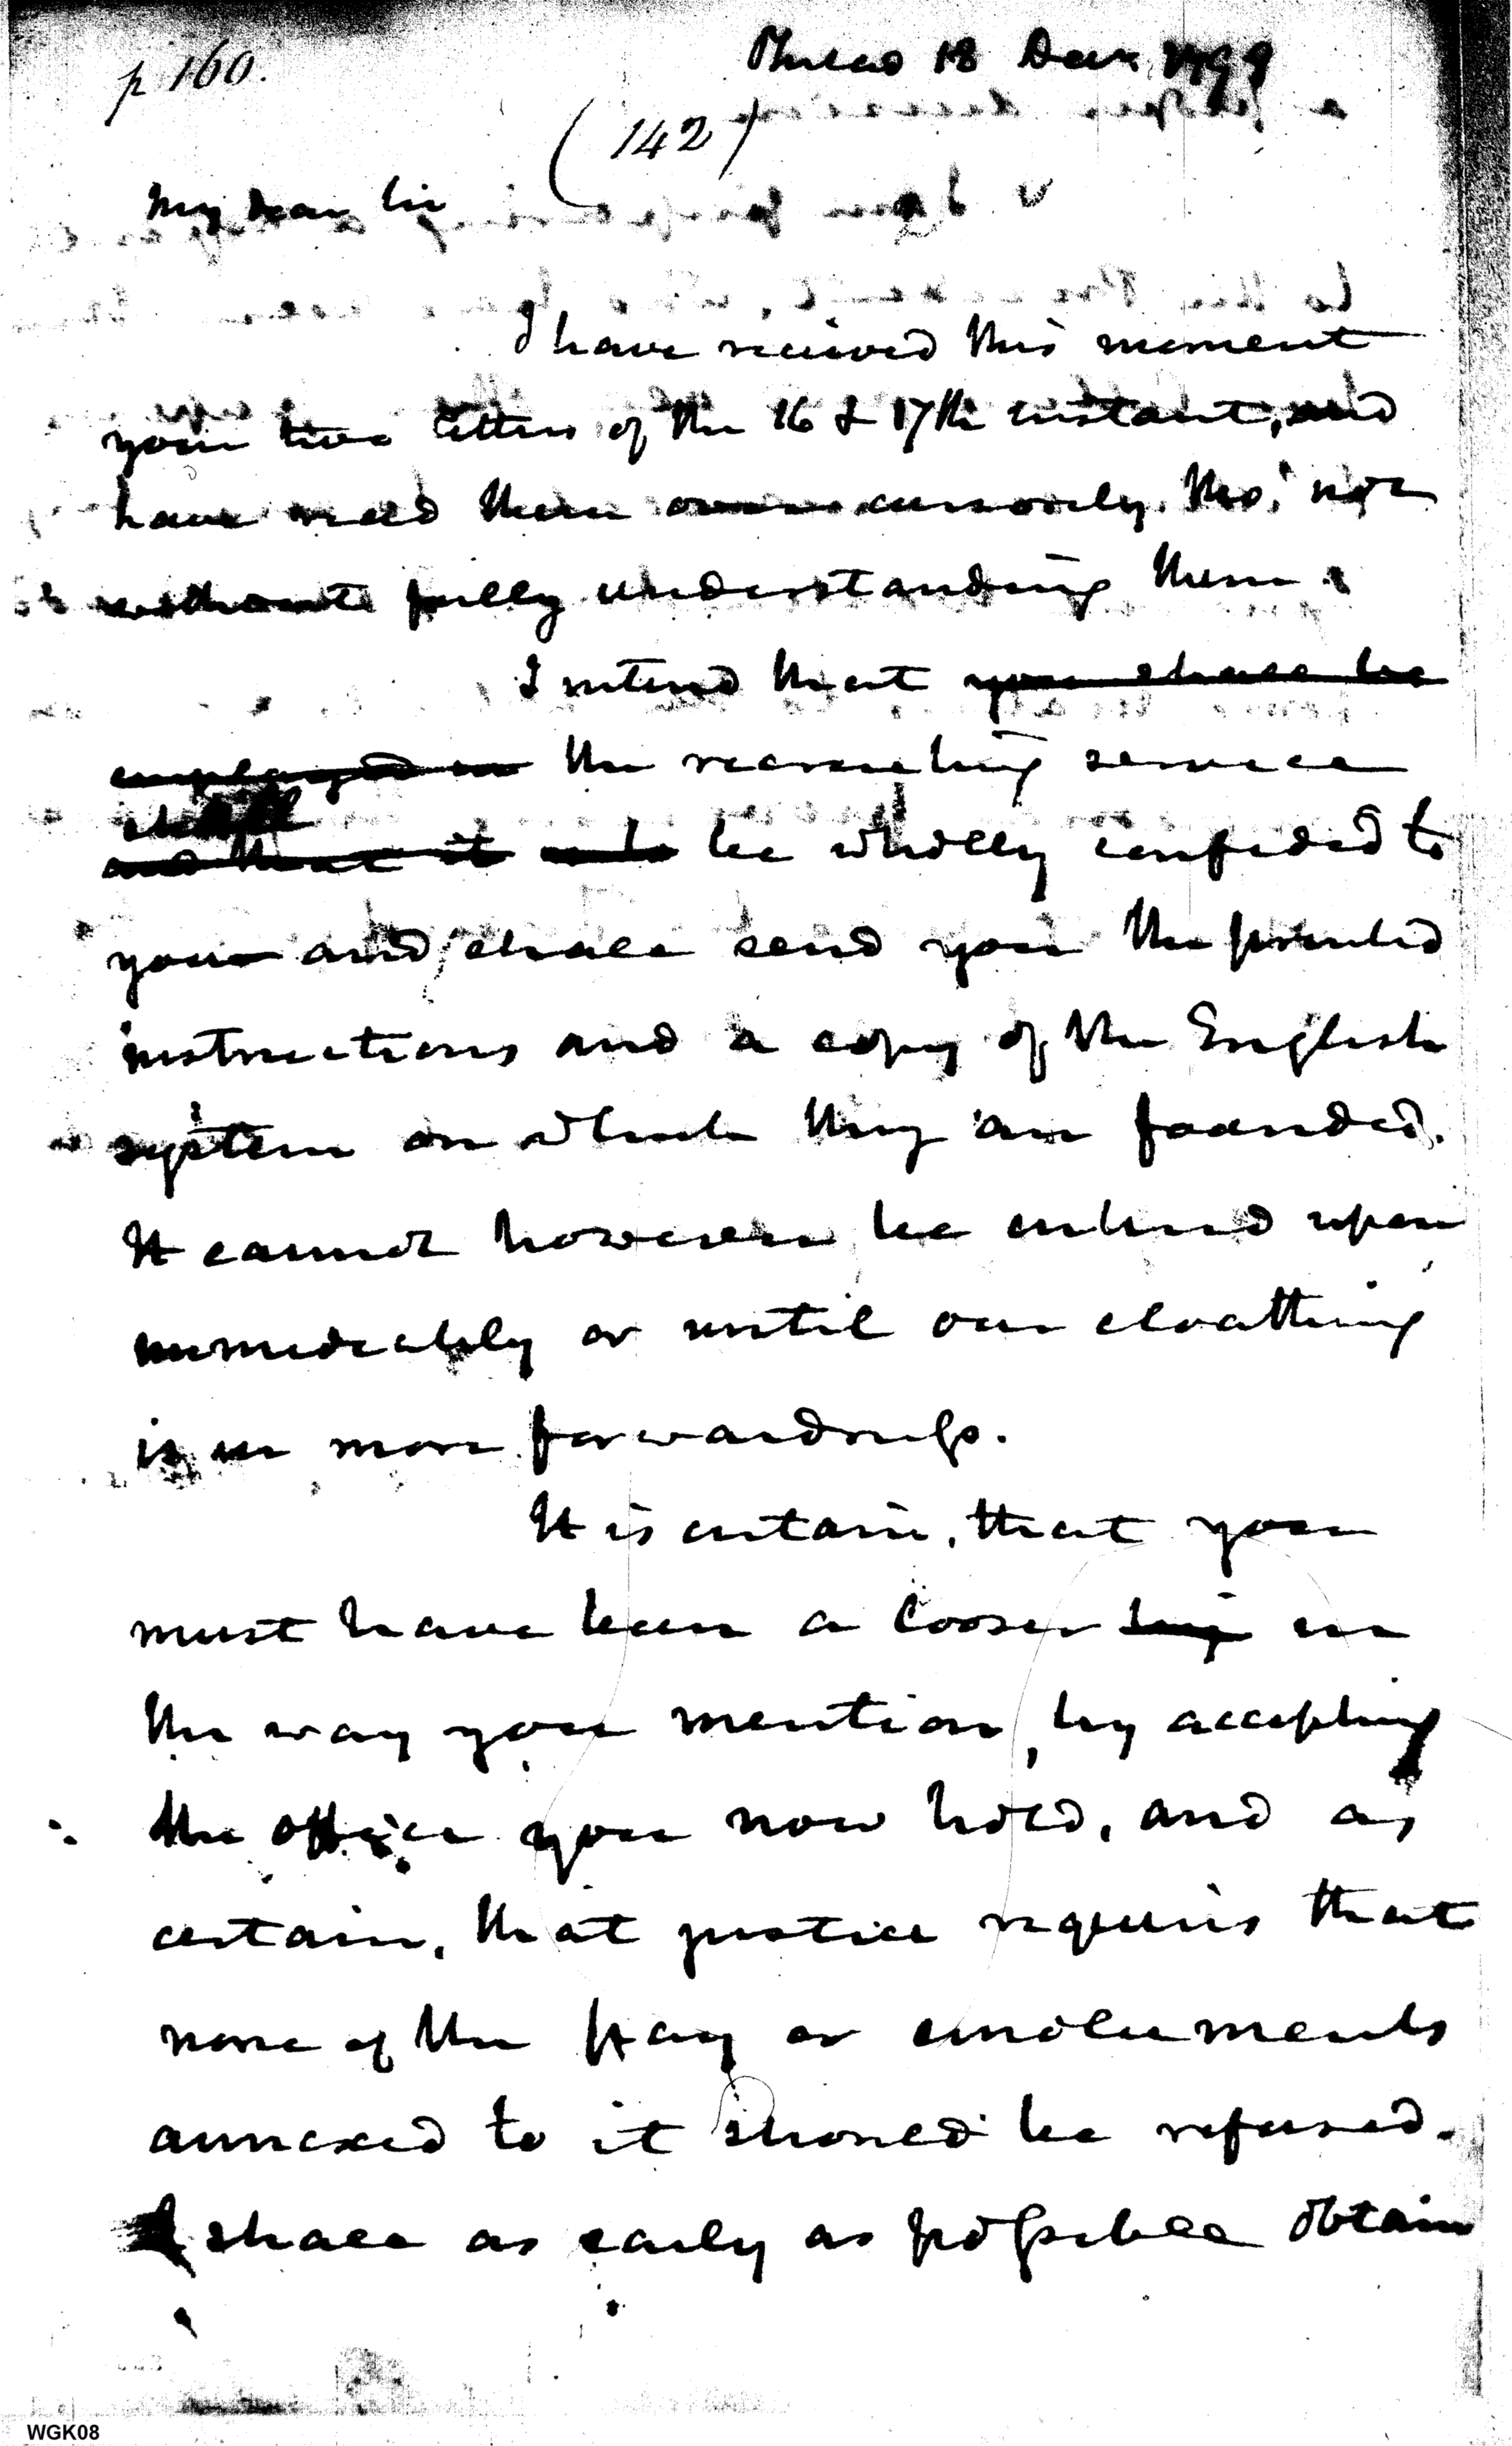 p 160.
Philad 18 Decr. 1799
(142)
My dear Sir
I have recieved this moment
your two letters of the 16 & 17th instant, and
have read them over cursorily tho' not
without fully understanding them.
I intend that you shall be
employed in the recruiting service
shall
and that it is to be wholly confided to
you and shall send you the printed
instructions and a copy of the English
system on which they are founded.
It cannot however be entered upon
immediately or until our cloathing
is in more forwardness.
It is certain, that you
must have been a looser in
the way you mention, by accepting
the office you now hold, and as
certain, that justice requires that
none of the pay or emoluments
annexed to it should be refused.
I shall as early as possible obtain
WGK08